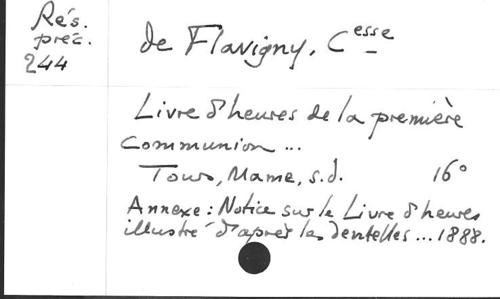 Rés.
préc.
244
de Flavigny, Cesse
Livre d'heures de la première
Communion ...
Tours, Mame, s.d. 16°
Annexe : Notice sur le Livre d'heures
illustré d'après les dentelles ... 1888.